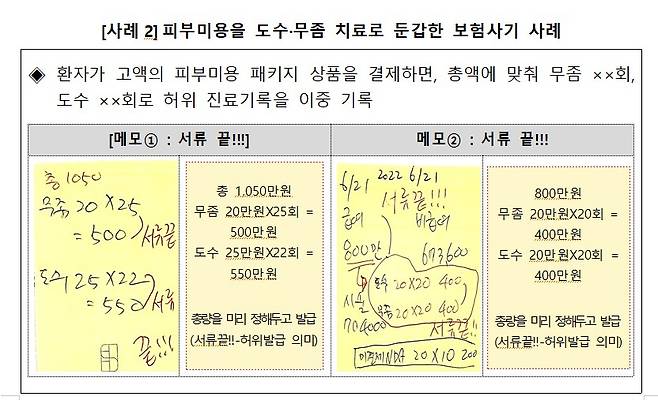 [사례 2] 피부미용을 도수·무좀 치료로 둔갑한 보험사기 사례
◈ 환자가 고액의 피부미용 패키지 상품을 결제하면, 총액에 맞춰 무좀 ××회,
도수 ××회로 허위 진료기록을 이중 기록
[메모① : 서류 끝!!!]
총 1050
무좀 20 X 25
= 500 서류끝
도수 25 X 22
= 550 서류
끝!!!
총 1,050만원
무좀 20만원X25회 =
500만원
도수 25만원X22회 =
550만원
총량을 미리 정해두고 발급
(서류끝!!-허위발급 의미)
메모② : 서류 끝!!!
6/21 2022 6/21
서류끝!!!
급여 비급여
800만 673600
도수 20X20 400
시술 무좀 20X20 400
704000 서류끝!!
미결제NDA 20 X 10 200
800만원
무좀 20만원X20회 =
400만원
도수 20만원X20회 =
400만원
총량을 미리 정해두고 발급
(서류끝!!-허위발급 의미)